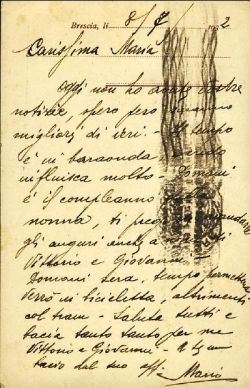 Brescia, li 8/7 1932
Carissima Maria
Oggi non ho avuto vostre
notizie, spero però saranno
migliori di ieri - Il tempo
è in baraonda
influisca molto - Domani
è il compleanno
nonna, ti
gli auguri anche a
Vittorio e Giovanni
Domani sera, tempo permettendo
verrò in bicicletta, altrimenti
col tram - Saluta tutti e
bacia tanto tanto per me
Vittorio e Giovanni -
bacio dal tuo aff. Mario